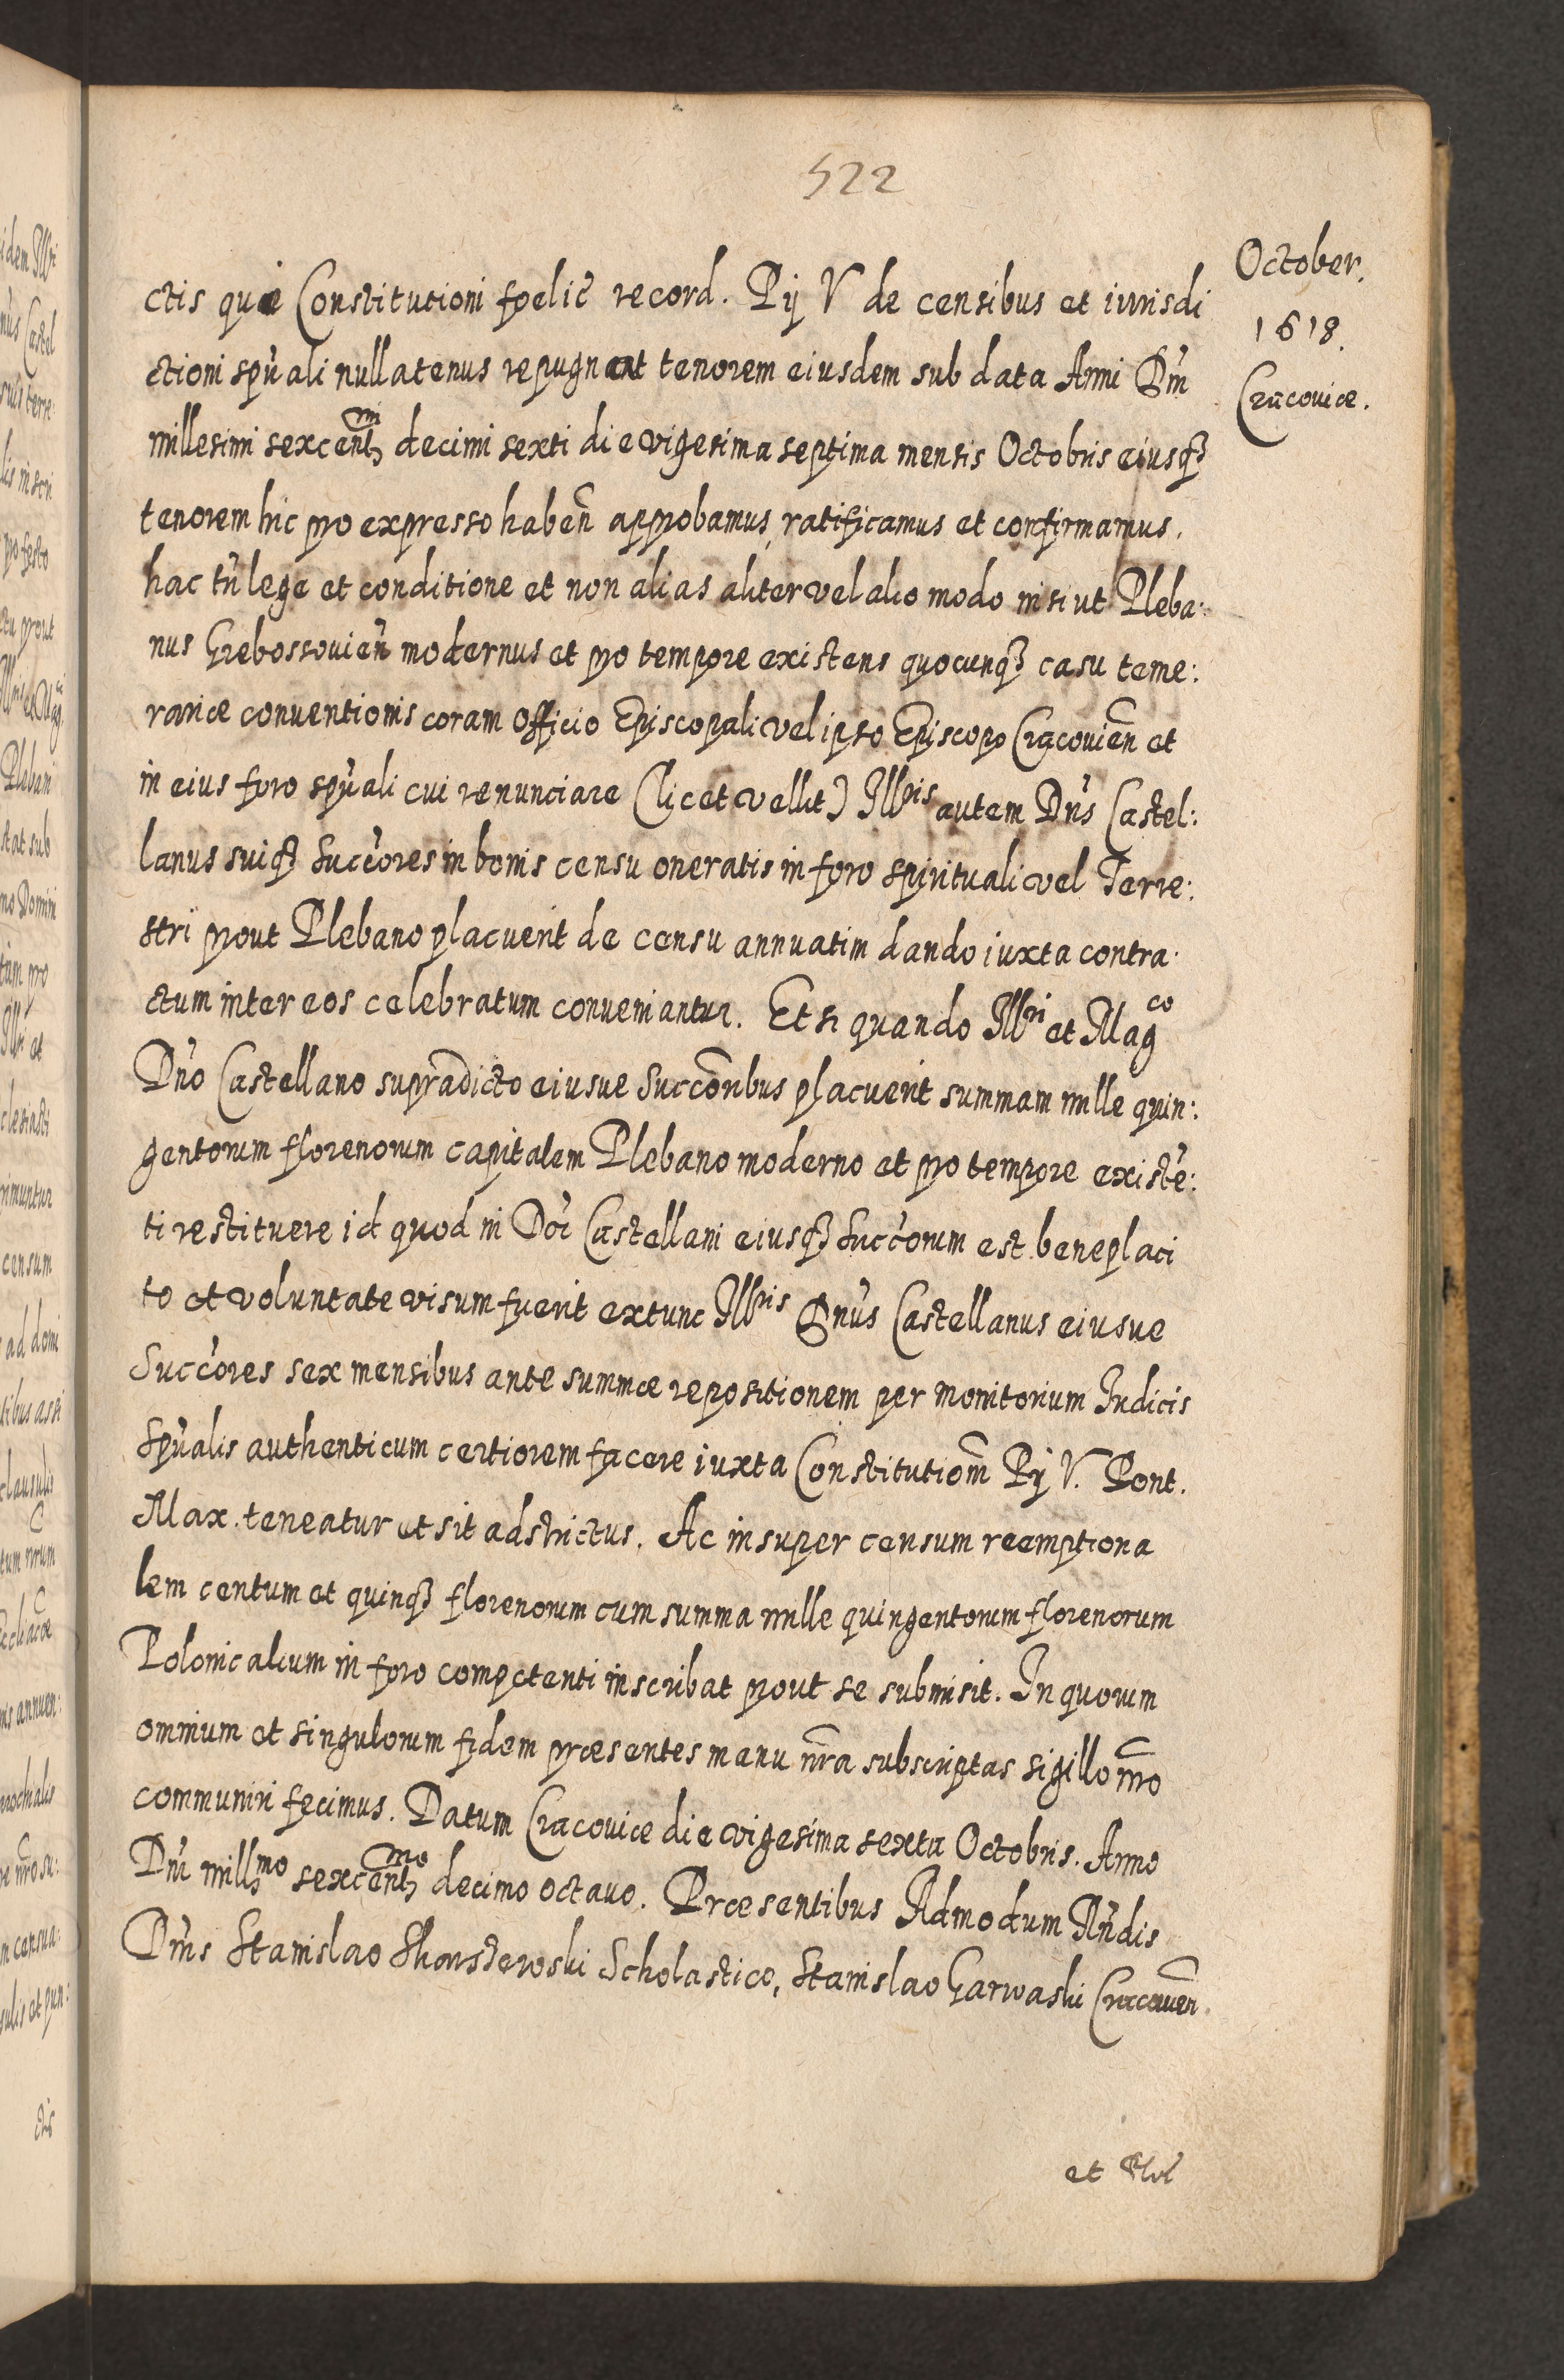 522
October.
1618.
Cracoviæ.
ctis quæ Constitutioni foelic̃ record. Pij V de censibus et iurisdi
ctioni spũali nullatenus repugnant tenorem eiusdem sub data Anni Dñi
millesimi sexcentmi decimi sexti die vigesima septima mensis Octobris eiusq3
tenorem hic pro expresso habeñ approbamus, ratificamus et confirmamus.
hac tñ lege et conditione et non alias aliter vel alio modo nisi ut Pleba:
nus Grebossovieñ modernus et pro tempore existens quocunq3 casu teme:
rariæ conventionis coram Officio Episcopali vel ipso Episcopo Cracovieñ et
in eius foro spũali cui renunciare (licet vellit) Illris autem Dñs Castel:
lanus suiq3 Succ̃ores in bonis censu oneratis in foro spirituali vel Terre:
stri prout Plebano placuerit de censu annuatim dando iuxta contra:
ctum inter eos celebratum conveniantur. Et si quando Illri et Magco
Dño Castellano supradicto eiusve Succoribus placuerit summam mille quin:
gentorum florenorum capitalem Plebano moderno et pro tempore existẽ:
ti restituere id quod in Dñi Castellani eiusq3 Succ̃orum est beneplaci
to et voluntate visum fuerit extunc Illris Dñus Castellanus eiusve
Succ̃ores sex mensibus ante summæ repositionem per monitorium Iudicis
Spũalis authenticum certiorem facere iuxta Constitutiom̃ Pij V. Pont.
Max. teneatur et sit adstrictus. Ac insuper censum reemptiona
lem centum et quinq3 florenorum cum summa mille quingentorum florenorum
Polonicalium in foro competenti inscribat prout se submisit. In quorum
omnium et singulorum fidem præsentes manu nr̃a subscriptas sigillo nr̃o
communiri fecimus. Datum Cracoviæ die vigesima sexta Octobris. Anno
Dñi millmo sexcentmo decimo octavo. Præsentibus Admodum Rñdis
Dñis Stanislao Skarszewski Scholastico, Stanislao Garwaski Cracovień.
et